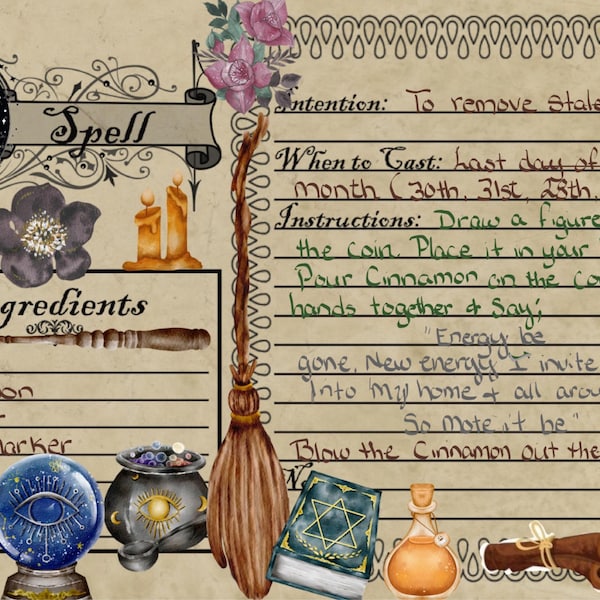 Spell
gredients
on
r
Marker
Intention: To remove Stale
When to Cast: Last day of
month (30th, 31st, 28th,
Instructions: Draw a figure
the coin. Place it in your
Pour Cinnamon on the co
hands together & Say;
"Energy be
gone. New energy I invite
Into My home & all arou
So Mote it be"
Blow the Cinnamon out the
No